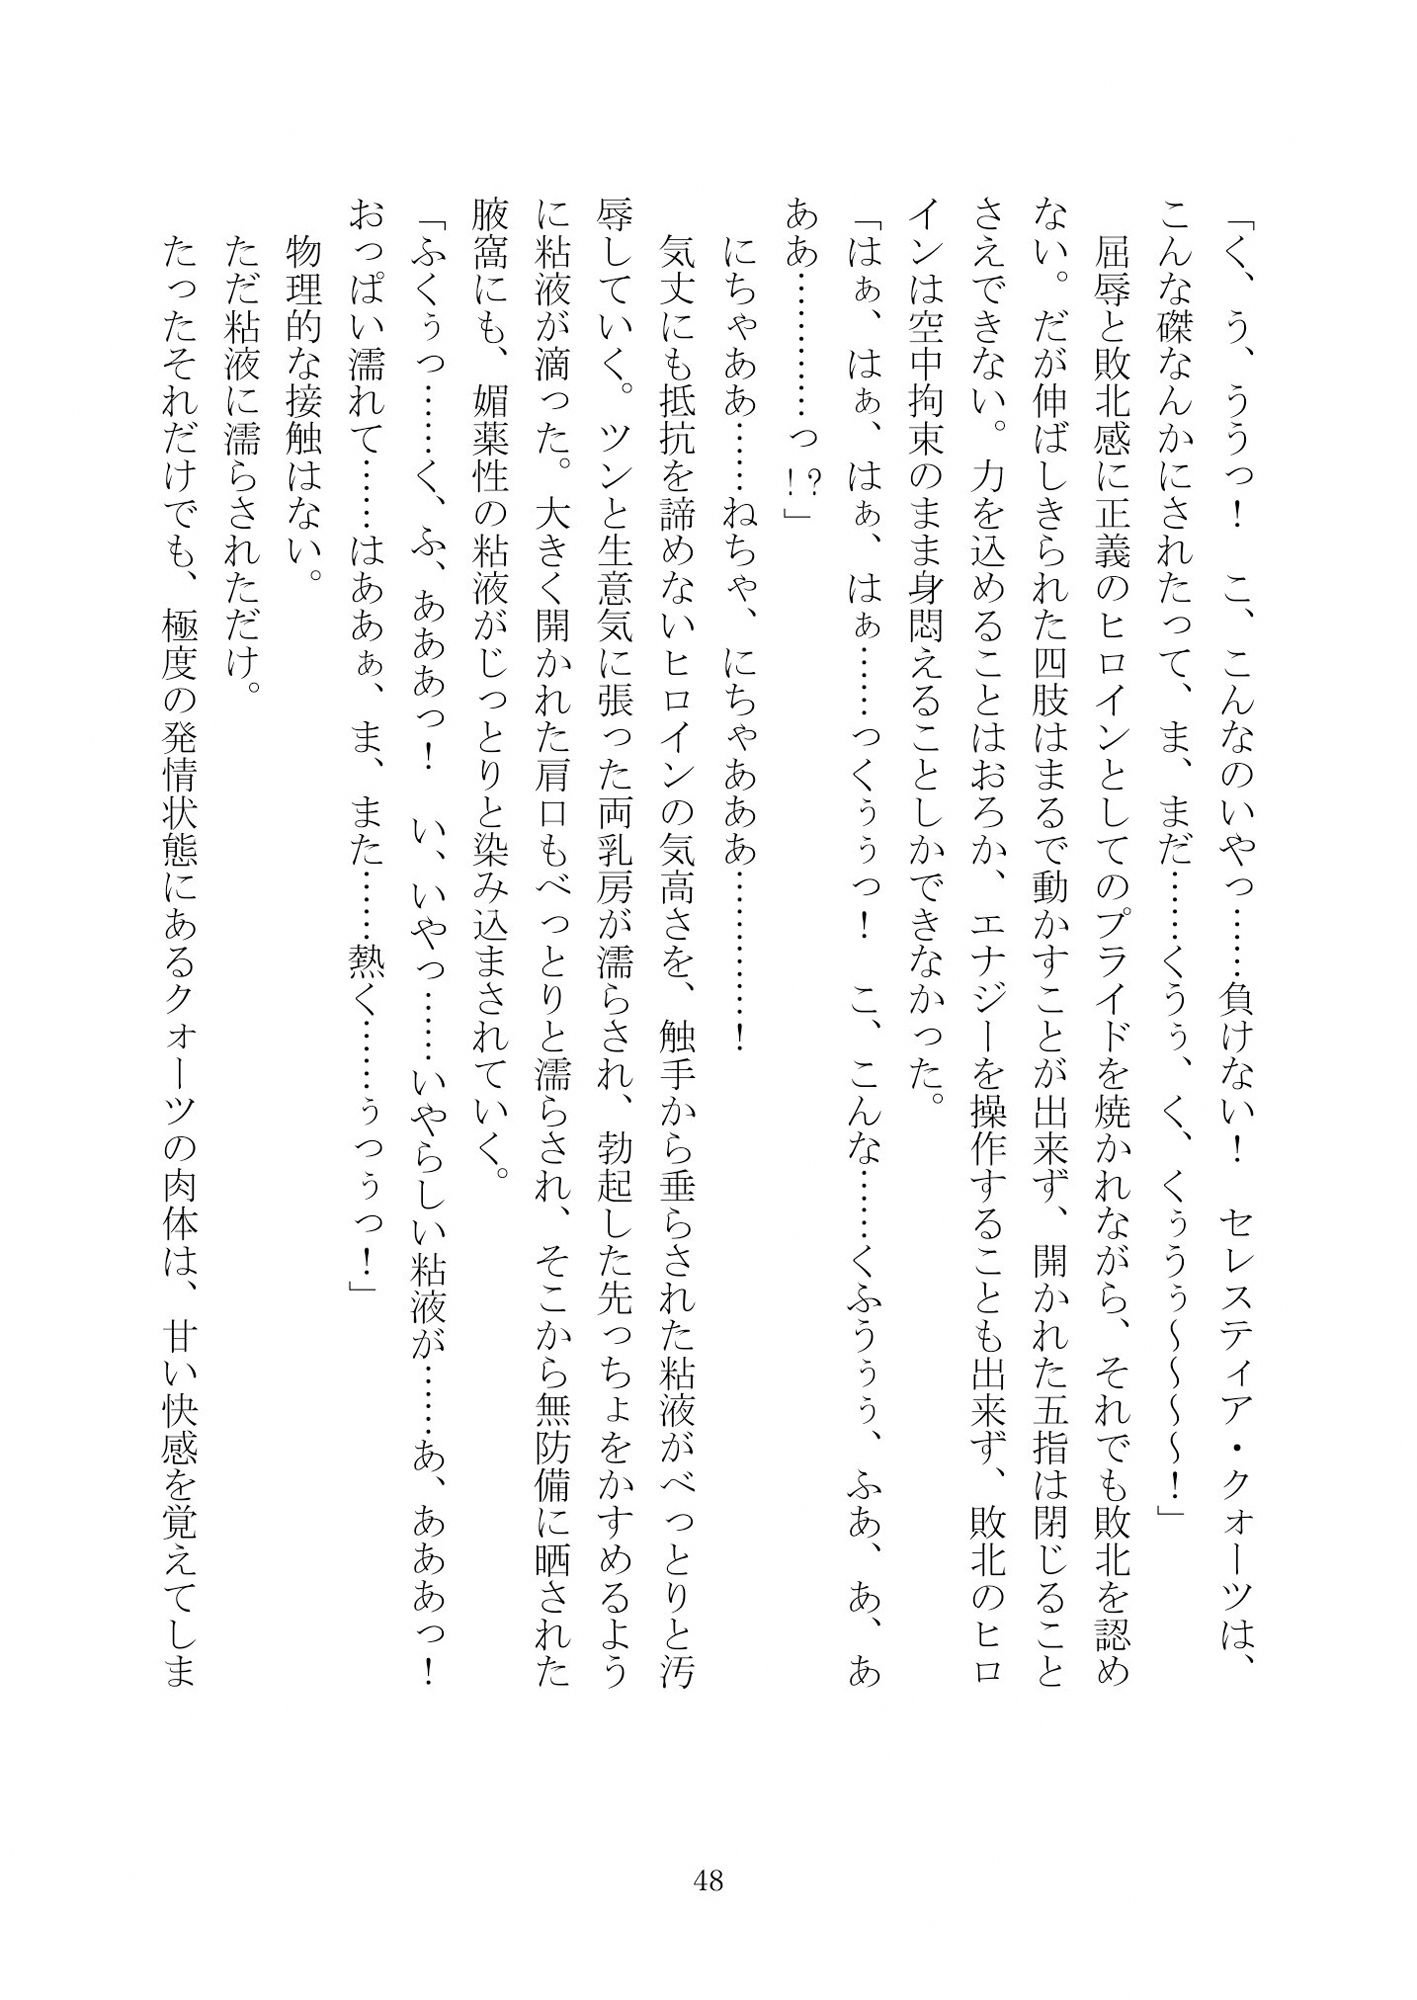 「く、う、ううっ！　こ、こんなのいやっ……負けない！　セレスティア・クォーツは、
こんな磔なんかにされたって、ま、まだ……くうぅ、く、くぅうぅ～～～～！」
　屈辱と敗北感に正義のヒロインとしてのプライドを焼かれながら、それでも敗北を認め
ない。だが伸ばしきられた四肢はまるで動かすことが出来ず、開かれた五指は閉じること
さえできない。力を込めることはおろか、エナジーを操作することも出来ず、敗北のヒロ
インは空中拘束のまま身悶えることしかできなかった。
「はぁ、はぁ、はぁ、はぁ……っくぅぅっ！　こ、こんな……くふうぅぅ、ふあ、あ、あ
ああ…………っ!?」
　にちゃああ……ねちゃ、にちゃあああ…………！
　気丈にも抵抗を諦めないヒロインの気高さを、触手から垂らされた粘液がべっとりと汚
辱していく。ツンと生意気に張った両乳房が濡らされ、勃起した先っちょをかすめるよう
に粘液が滴った。大きく開かれた肩口もべっとりと濡らされ、そこから無防備に晒された
腋窩にも、媚薬性の粘液がじっとりと染み込まされていく。
「ふくぅっ……く、ふ、あああっ！　い、いやっ……いやらしい粘液が……あ、あああっ！
おっぱい濡れて……はああぁ、ま、また……熱く……ぅっぅっ！」
　物理的な接触はない。
　ただ粘液に濡らされただけ。
　たったそれだけでも、極度の発情状態にあるクォーツの肉体は、甘い快感を覚えてしま
48